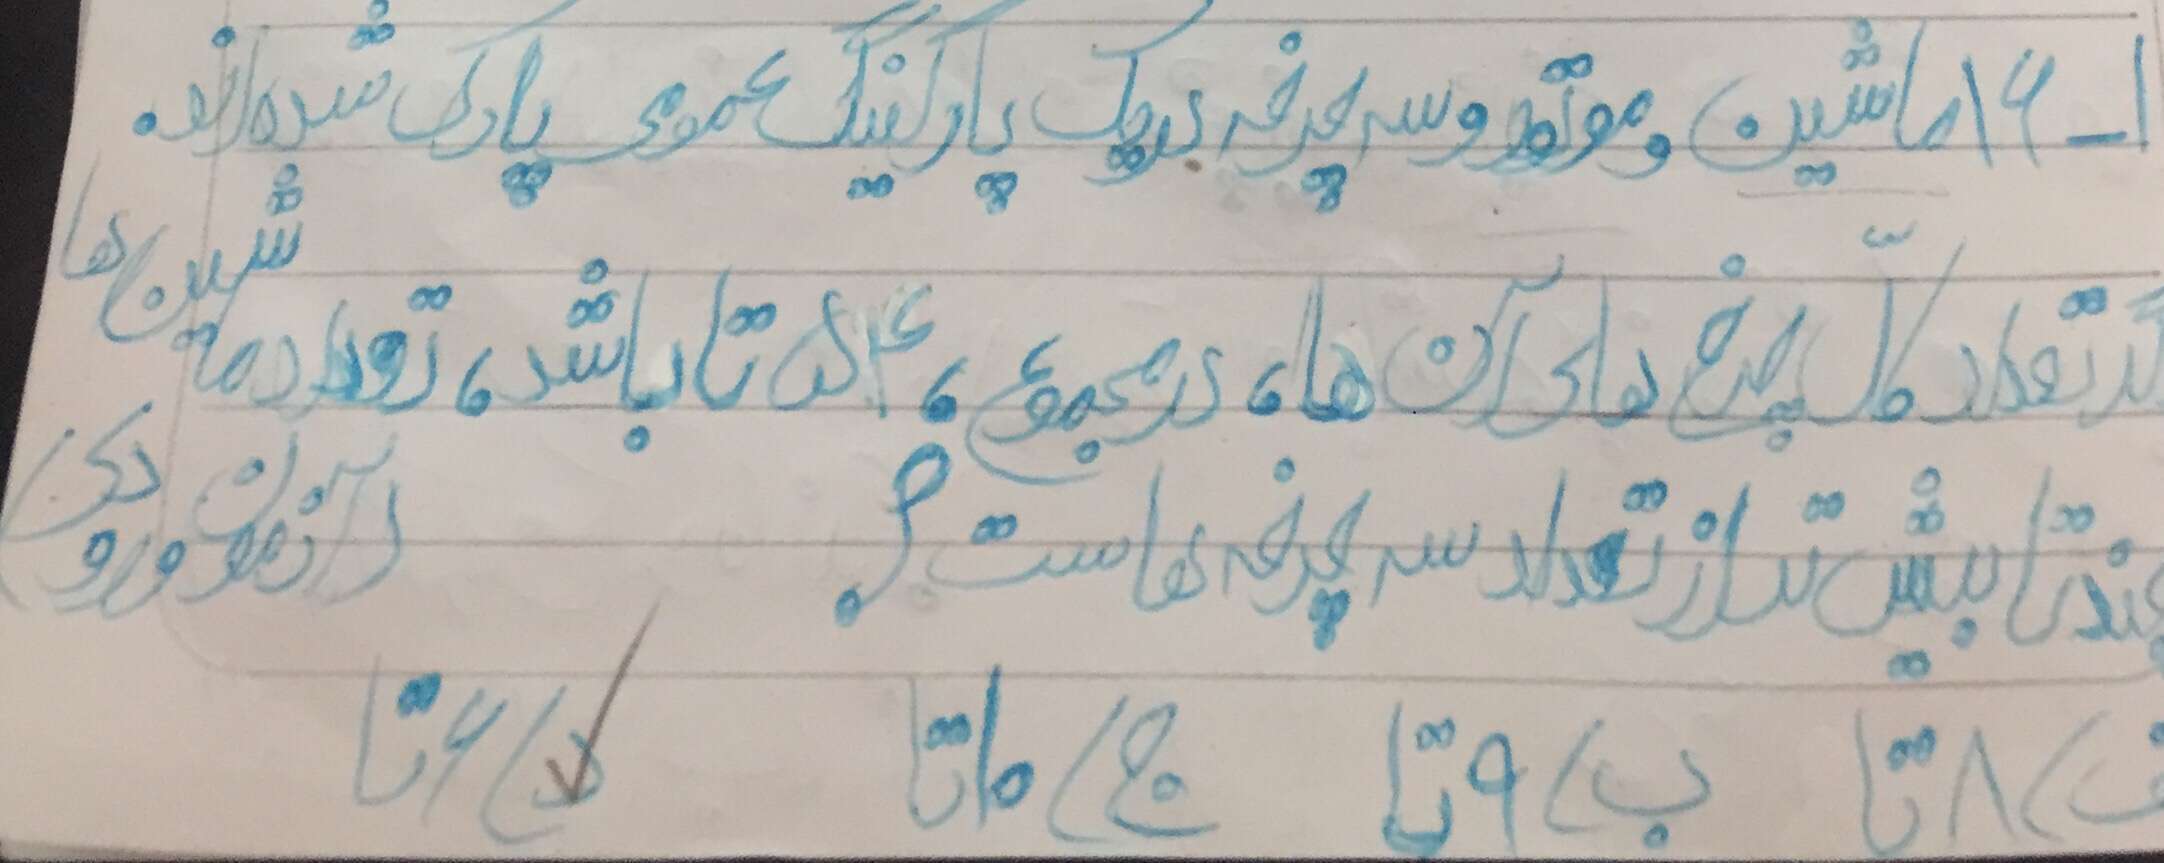 ۱ـ ۱۶ ماشین و موتور و سه چرخه در یک پارکینگ عمومی پارک شده اند.
گر تعداد کلّ چرخ های آن ها، در مجموع، ۵۴ تا باشد، تعداد ماشین ها
چندتا بیش تر از تعداد سه چرخه هاست؟
ف) ۸ تا ب) ۹ تا ج) ۱۰ تا د) ۶ تا